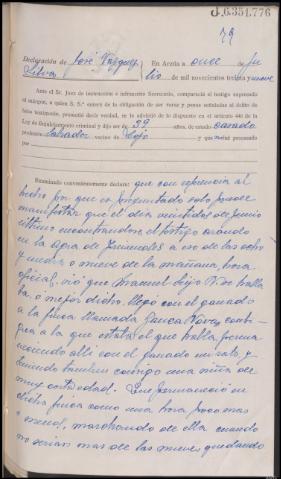 J.6.351.776
79
Declaración de José Vazquez
Silva
En Arzúa a once de Ju
lio de mil novecientos treinta y nueve
Ante el Sr. Juez de instrucción e infrascrito Secretario, compareció el testigo expresado
al margen, a quien S. S.ª enteró de la obligación de ser veraz y penas señaladas al delito de
falso testimonio, prometió decir verdad, se le advirtió de lo dispuesto en el artículo 446 de la
Ley de Enjuiciamiento criminal y dijo ser de 39 años, de estado casado
profesión labrador vecino de Dojo y que no está procesado
por
Examinado convenientemente declara: que con referencia al
hecho por que es preguntado solo puede
manifestar que el día veintidos de Junio
último encontrandose el testigo arando
en la agra de a eso de las ocho
y media o nueve de la mañana, hora
oficial, vió que Manuel habla
ba, o mejor dicho, llegó con el ganado
a la finca llamada contí
gua a la que estaba el que habla, perma
neciendo allí con el ganado un rato, y
teniendo tambien consigo una niña de
muy corta edad. Que permaneció en
dicha finca como una hora poco mas
o menos, marchando de ella cuando
no serían mas de las nueve quedando